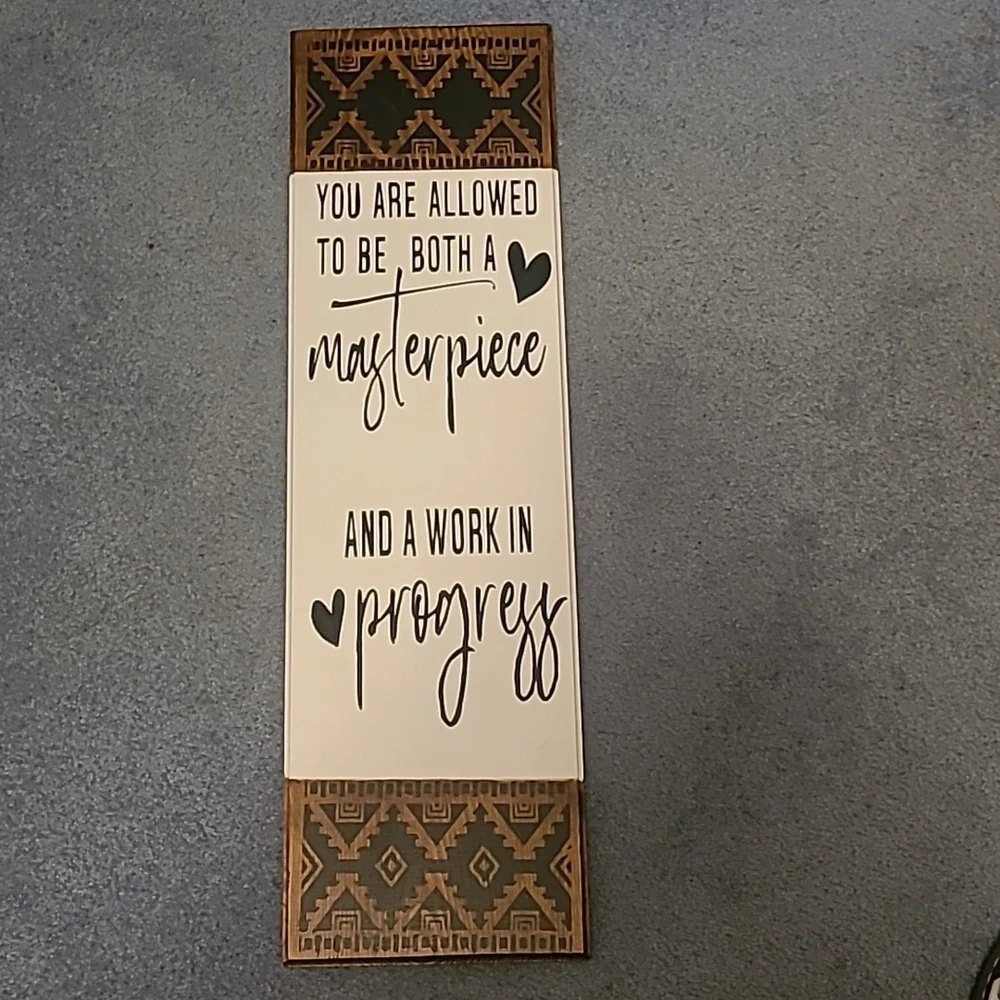 YOU ARE ALLOWED
TO BE BOTH A
masterpiece
AND A WORK IN
progress